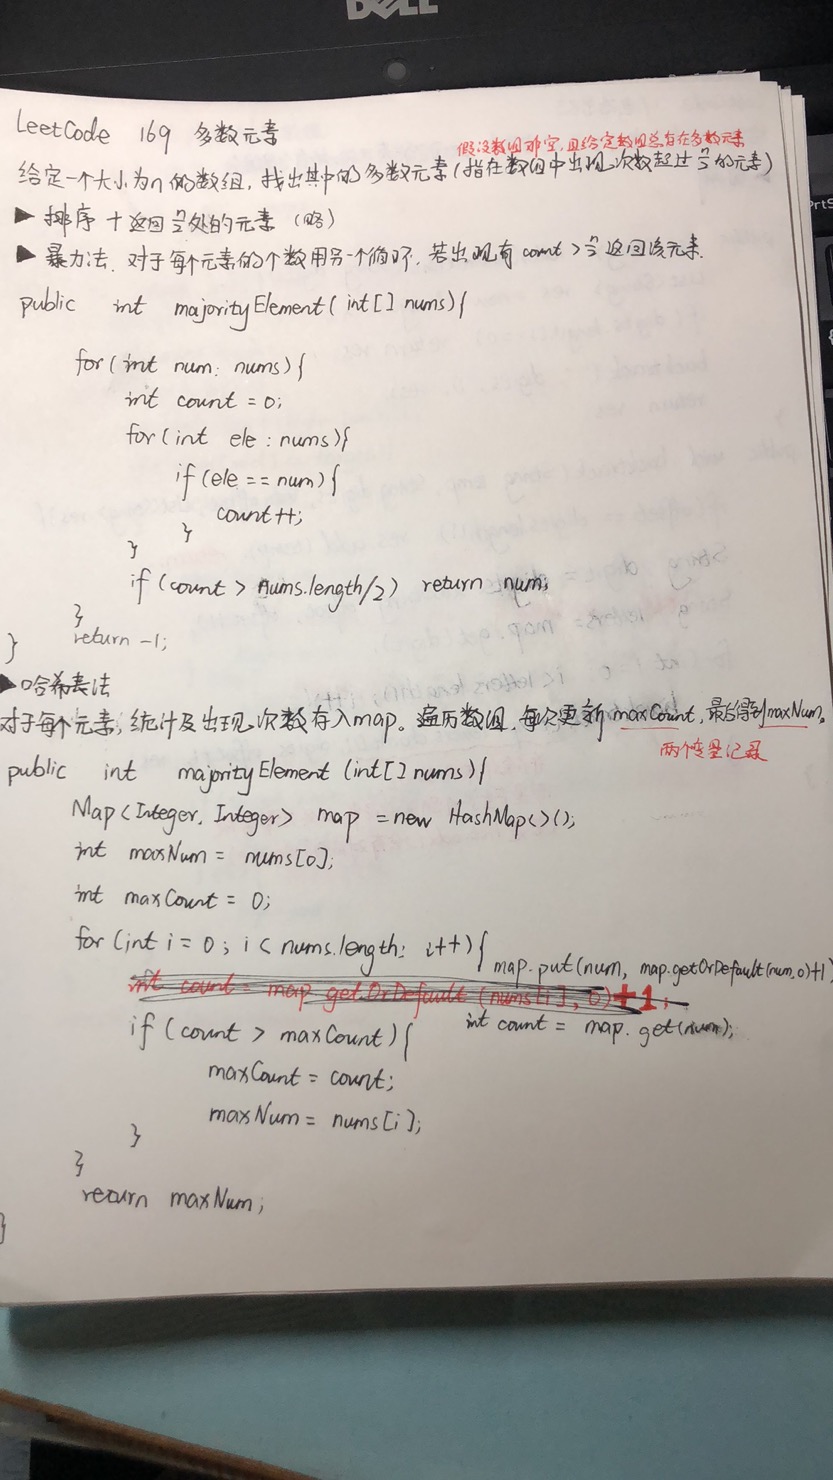 DELL
LeetCode 169 多数元素
假设数组非空,且给定数组总存在多数元素
给定一个大小为n的数组,找出其中的多数元素(指在数组中出现次数超过n/2的元素)
▶ 排序 + 返回n/2处的元素 (略)
▶ 暴力法.对于每个元素的个数用另一个循环,若出现有count>n/2返回该元素.
public int majorityElement(int[] nums){
for(int num: nums){
int count = 0;
for(int ele : nums){
if(ele == num){
count++;
}
}
if(count > nums.length/2) return num;
}
return -1;
}
▶哈希表法
对于每个元素,统计及出现次数存入map。遍历数组,每次更新maxCount,最后得到maxNum。
两个变量记录
public int majorityElement(int[] nums){
Map<Integer, Integer> map = new HashMap<>();
int maxNum = nums[0];
int maxCount = 0;
for(int i = 0; i < nums.length; i++){
map.put(num, map.getOrDefault(num,0)+1)
int count = map.getOrDefault(nums[i],0)+1;
int count = map.get(num);
if(count > maxCount){
maxCount = count;
maxNum = nums[i];
}
}
return maxNum;
}
PrtS